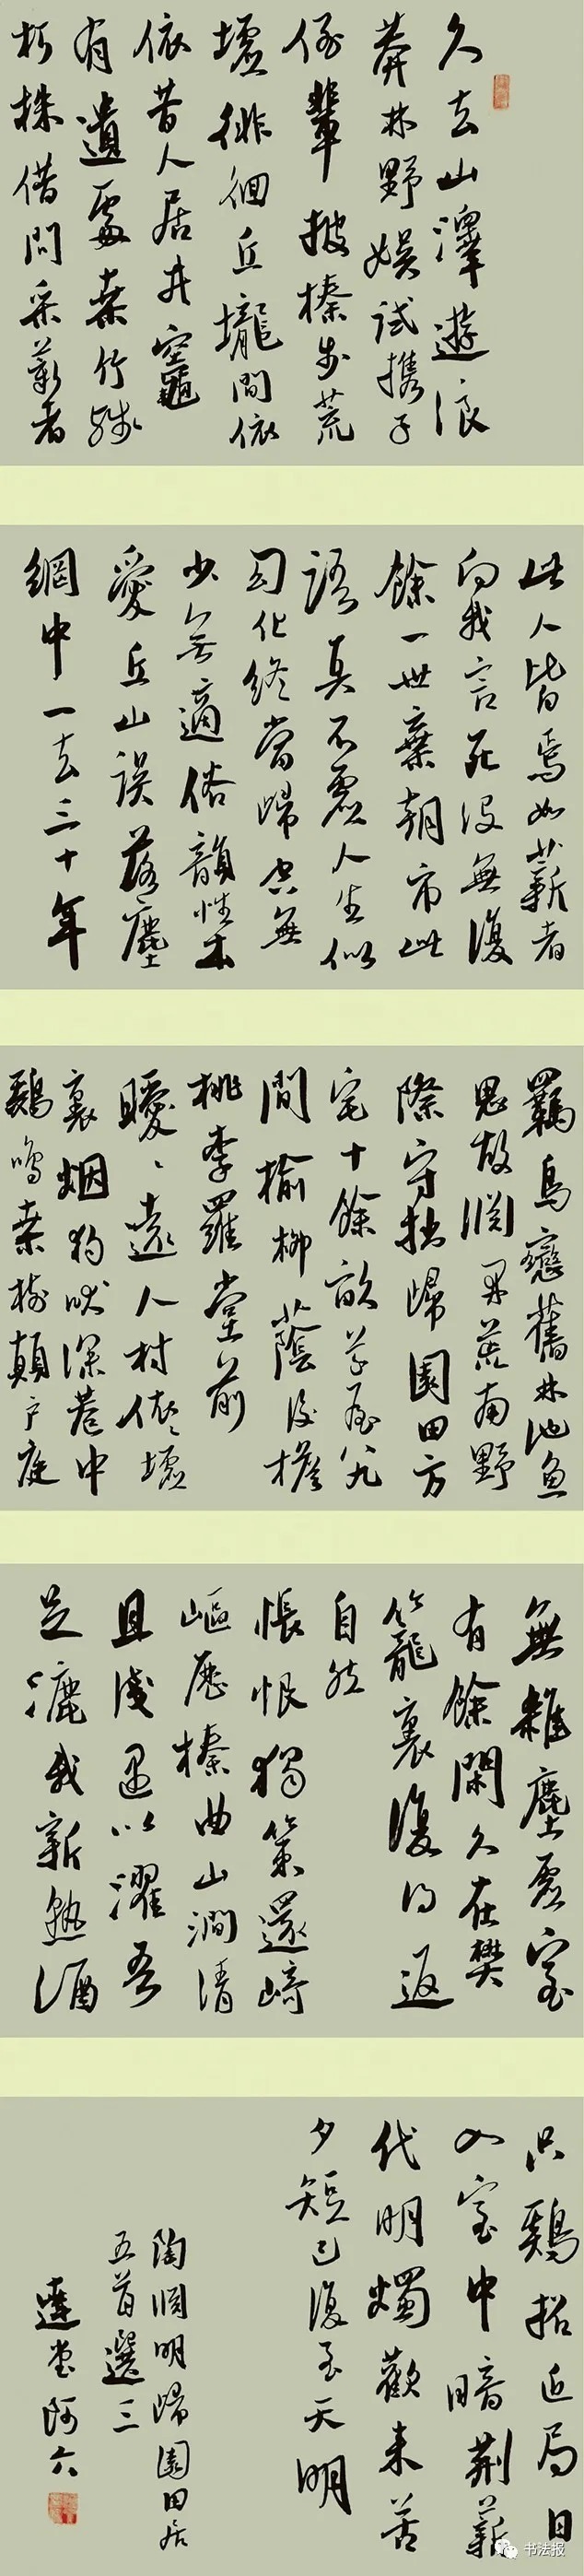 久去山澤遊浪
莽林野娛試攜子
侄輩披榛步荒
墟徘徊丘壠間依
依昔人居井竈
有遺處桑竹殘
朽株借問采薪者
此人皆焉如薪者
向我言死沒無復
餘一世棄朝市此
語真不虛人生似
幻化終當歸空無
少無適俗韻性本
愛丘山誤落塵
網中一去三十年
羈鳥戀舊林池魚
思故淵開荒南野
際守拙歸園田方
宅十餘畝草屋八九
間榆柳蔭後檐
桃李羅堂前
曖曖遠人村依依墟
裏烟狗吠深巷中
鷄鳴桑樹顛戶庭
無雜塵虛室
有餘閑久在樊
籠裏復得返
自然
悵恨獨策還崎
嶇歷榛曲山澗清
且淺遇以濯吾
足漉我新熟酒
只鷄招近局日
入室中暗荊薪
代明燭歡來苦
夕短已復至天明
陶淵明歸園田居
五首選三
堂阿六
书法报